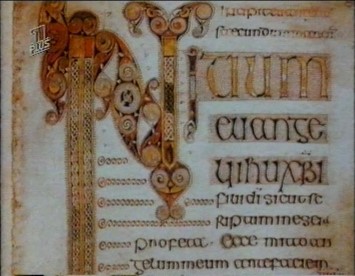 PLUS
secundum
INI
tium
euange
lii ihu xpi
fili di sicut sc
riptum in esei
profeta Ecce mitto an
gelum meum ante faciem